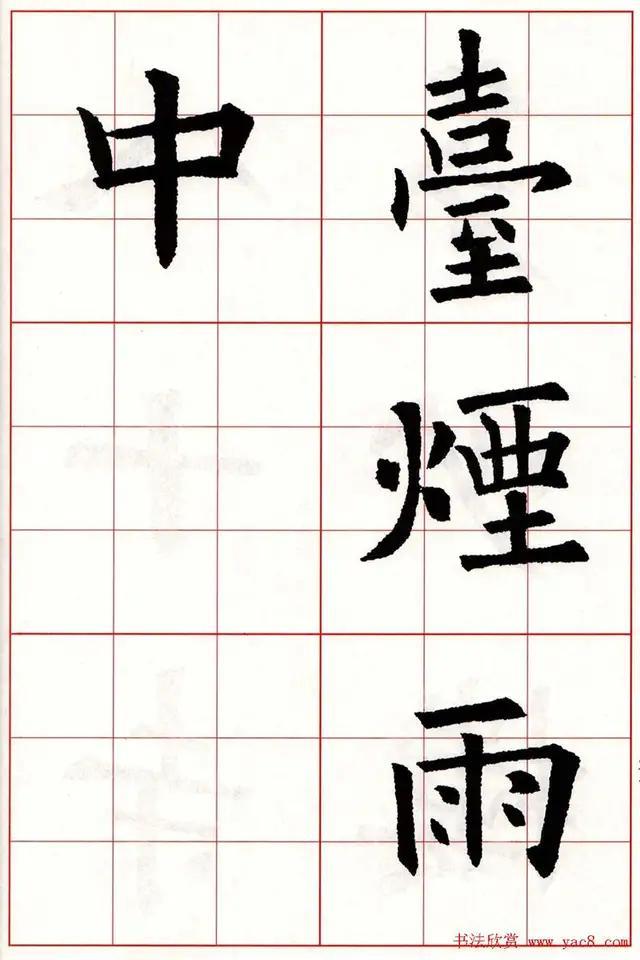 臺煙雨
中
书法欣赏 www.yac8.com